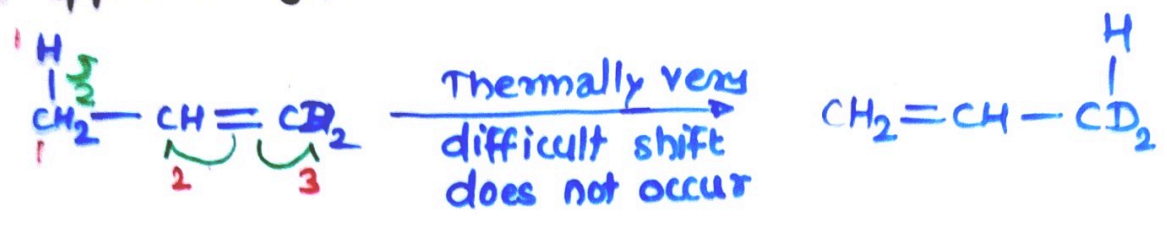 1 H
2
CH2 — CH = CD2
1 2 3
Thermally very
difficult shift
does not occur
H
CH2 = CH — CD2